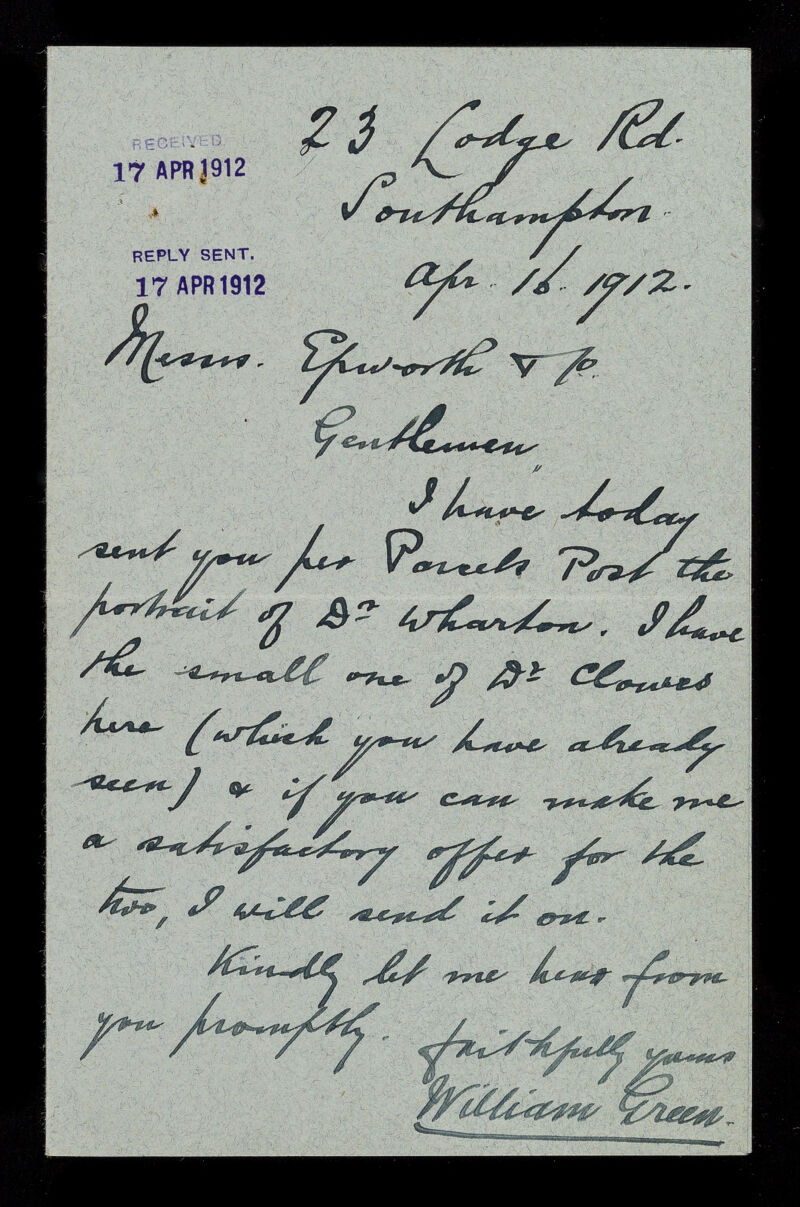 RECEIVED
17 APR 1912
REPLY SENT.
17 APR 1912
23 Lodge Rd.
Southampton
Apr. 16. 1912.
Messrs. Epworth & Co
Gentlemen,
I have today
sent you per Parcels Post the
portrait of Dr Wharton. I have
the small one of Dr Clowes
here (which you have already
seen) & if you can make me
a satisfactory offer for the
two, I will send it on.
Kindly let me hear from
you promptly.
faithfully yours
William Green.